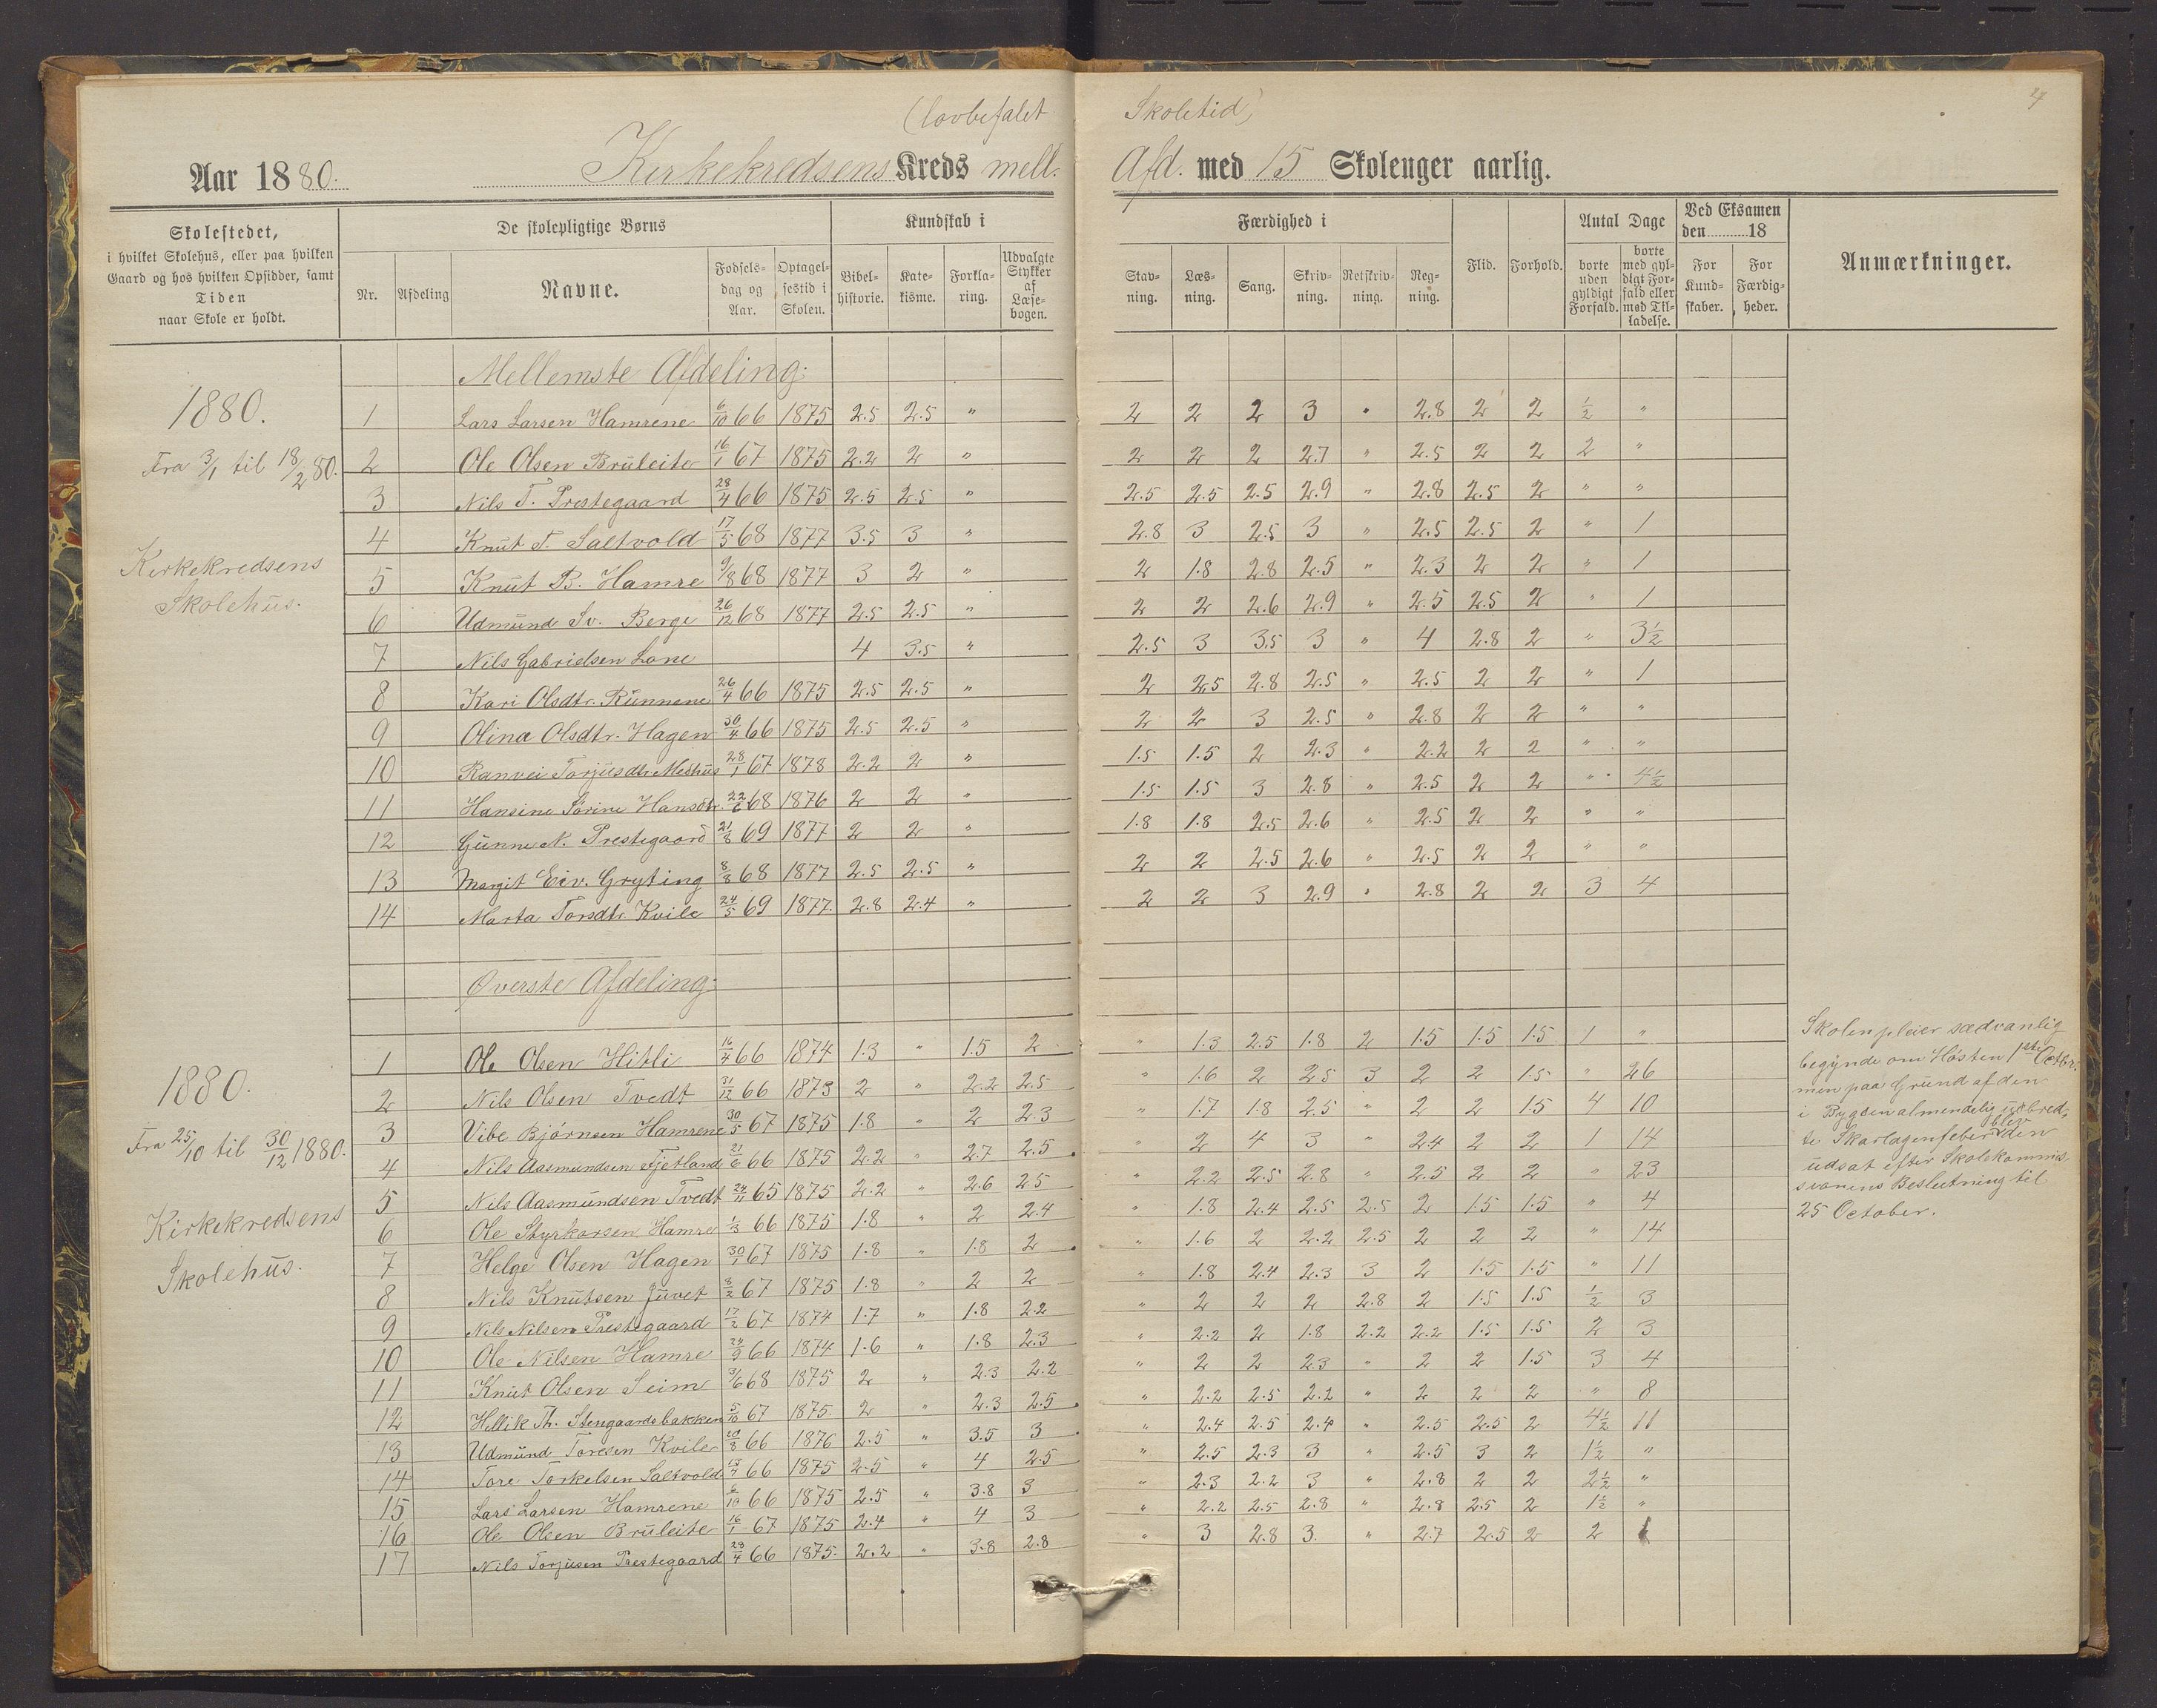 (lovbefalet Skoletid)
24
Aar 1880. Kirkekredsens Kreds mell. Afd. med 15 Skoleuger aarlig.
Skolestedet,
i hvilket Skolehus, eller paa hvilken
Gaard og hos hvilken Opsidder, samt
Tiden
naar Skole er holdt.
De skolepligtige Børns
Nr.
Afdeling
Navne.
Fødsels-
dag og
Aar.
Optagel-
sestid i
Skolen.
Kundskab i
Bibel-
historie.
Kate-
kisme.
Forkla-
ring.
Udvalgte
Stykker
af
Læse-
bogen.
Færdighed i
Stav-
ning.
Læs-
ning.
Sang.
Skriv-
ning.
Retskriv-
ning.
Reg-
ning.
Flid.
Forhold.
Antal Dage
borte
uden
gyldigt
Forfald.
borte
med gyl-
digt For-
fald eller
med Til-
ladelse.
Ved Eksamen
den 18
For
Kund-
skaber.
For
Færdig-
heder.
Anmærkninger.
Mellemste Afdeling.
1880.
Fra 3/1 til 18/2 80.
Kirkekredsens
Skolehus.
1 Lars Larsen Hamrene 6/10 66 1875 2.5 2.5 " 2 2 2 3 " 2.8 2 2 1/2 "
2 Ole Olsen Bruleite 16/1 67 1875 2.2 2 " 2 2 2 2.7 " 2.5 2 2 2 "
3 Nils T. Prestegaard 28/4 66 1875 2.5 2.5 " 2.5 2.5 2.5 2.9 " 2.8 2.5 2 " "
4 Knut T. Saltvold 17/5 68 1877 3.5 3 " 2.8 3 2.5 3 " 2.5 2.5 2 " 1
5 Knut B. Hamre 9/8 68 1877 3 2 " 2 1.8 2.8 2.5 " 2.3 2 2 " 1
6 Udmund Sv. Berge 26/12 68 1877 2.5 2.5 " 2 2 2.6 2.9 " 2.5 2.5 2 " 1
7 Nils Gabrielsen Lone 4 3.5 " 2.5 3 3.5 3 " 4 2.8 2 " 3 1/2
8 Kari Olsdtr. Runnene 26/4 66 1875 2.5 2.5 " 2 2.5 2.8 2.5 " 2.5 2 2 " 1
9 Olina Olsdtr. Hagen 30/4 66 1875 2.5 2.5 " 2 2 3 2.5 " 2.8 2 2 " "
10 Ranvei Torjusdtr Meshus 28/1 67 1878 2.2 2 " 1.5 1.5 2 2.3 " 2.2 2 2 " "
11 Hansine Sørine Hansdtr 22/6 68 1876 2 2 " 1.5 1.5 3 2.8 " 2.5 2 2 " 4 1/2
12 Gunne N. Prestegaard 21/8 69 1877 2 2 " 1.8 1.8 2.5 2.6 " 2.5 2 2 " "
13 Margit Eiv. Gryting 8/8 68 1877 2.5 2.5 " 2 2 2.5 2.6 " 2.5 2 2 " "
14 Marta Torsdtr Kvile 24/5 69 1877. 2.8 2.4 " 2 2 3 2.9 " 2.8 2 2 3 4
Øverste Afdeling.
1880.
Fra 25/10 til 30/12 1880.
Kirkekredsens
Skolehus.
1 Ole Olsen Hitli 16/4 66 1874 1.3 " 1.5 2 " 1.3 2.5 1.8 2 1.5 1.5 1.5 1 "
2 Nils Olsen Tvedt 31/12 66 1873 2 " 2.2 2.5 " 1.6 2 2.5 3 2 2 1.5 " 26
3 Vibe Bjørnsen Hamrene 30/5 67 1875 1.8 " 2 2.3 " 1.7 1.8 2.5 " 2 2 1.5 4 10
4 Nils Aasmundsen Fjetland 21/6 66 1875 2.2 " 2.7 2.5 " 2 4 3 " 2.4 2 2 1 14
5 Nils Aasmundsen Tvedt 24/11 65 1875 2.2 " 2.6 2.5 " 2.2 2.5 2.8 " 2.5 2 2 " 23
6 Ole Styrkorsen Hamre 1/3 66 1875 1.8 " 2 2.4 " 1.8 2.4 2.5 2.5 2 1.5 1.5 " 4
7 Helge Olsen Hagen 30/1 67 1875 1.8 " 1.8 2 " 1.6 2 2.2 2.5 2 2 2 " 14
8 Nils Knutsen Juvet 8/2 67 1875 1.8 " 2 2 " 1.8 2.4 2.3 3 2 1.5 1.5 " 11
9 Nils Nilsen Prestegaard 17/2 67 1874 1.7 " 1.8 2.2 " 2 2 2 2.8 2 1.5 1.5 1/2 3
10 Ole Nilsen Hamre 24/9 66 1874 1.6 " 1.8 2.3 " 2.2 2 1.8 2.2 2.2 1.5 1.5 2 3
11 Knut Olsen Seim 3/6 68 1875 2 " 2.3 2.2 " 2 2 2.3 " 2 2 1.5 3 4
12 Hellik Th. Stengaardsbakken 5/10 67 1875. 2 " 2.3 2.5 " 2.2 2.5 2.2 " 2 2 2 " 8
13 Udmund Toresen Kvile 20/8 66 1876 2.5 " 3.5 3 " 2.4 2.5 2.4 " 2.5 2.5 2 4 1/2 11
14 Tore Torkelsen Saltvold 13/7 66 1875 2.5 " 4 2.5 " 2.5 2.3 3 " 2.5 3 2 1 1/2 "
15 Lars Larsen Hamrene 6/10 66 1875 2.5 " 3.8 3 " 2.3 2.2 3 " 2.8 2 2 2 1/2 "
16 Ole Olsen Bruleite 16/1 67 1875 2.4 " 4 3 " 2.2 2.5 2.8 " 2.8 2.5 2 1 1/2 "
17 Nils Torjusen Prestegaard 28/4 66 1875. 2.2 " 3.8 2.8 " 3 2.8 3. " 2.7 2.5 2 2
Skolen pleier sædvanlig
begynde om Høsten 1ste Octbr.
men paa Grund af den
i Bygden almendelig udbred-
te Skarlagenfeber blev den
udsat efter Skolekommis-
sionens Beslutning til
25 October.